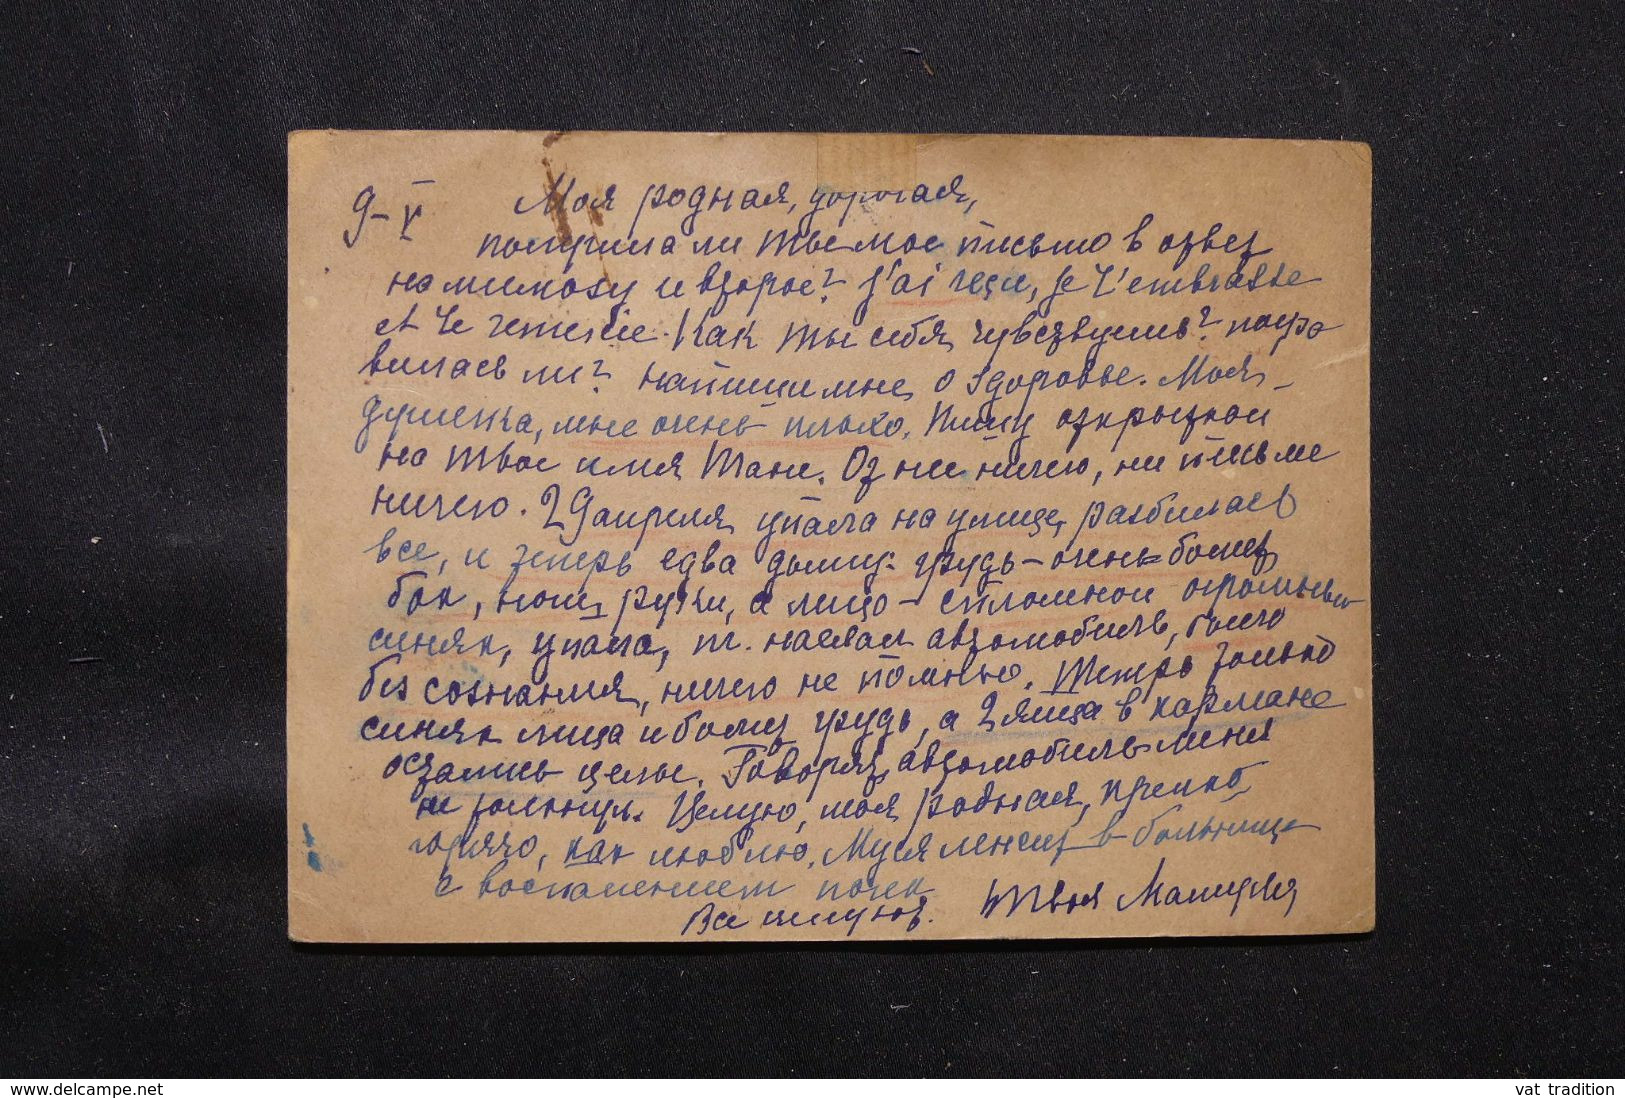 9-V Моя родная, дорогая,
получила ли ты мое письмо в ответ
на мимозу и второе? J'ai reçu, je t'embrasse
et te remercie. Как ты себя чувствуешь? попра
вилась ли? напиши мне о здоровье. Моя
душенька, мне очень плохо. Пишу открыткой
на твое имя Тане. От нее ничего, ни письма
ничего. 29 апреля упала на улице, разбилась
вся, и теперь едва дышу: грудь - очень болит
бок, ноги, руки, а лицо - сплошной огромный
синяк, упала, т.ч. наехал автомобиль, было
без сознания, ничего не помню. Теперь только
синяк лица и болит грудь, а 2 яйца в кармане
остались целы. Говорят, автомобиль меня
не толкнул. Целую, моя родная, крепко
горячо, как люблю. Муся лежит в больнице
с воспалением почек
Все целуют. Твоя
www.delcampe.net
vat_tradition